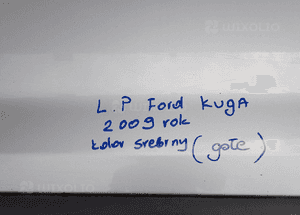 L.P Ford KUGA
2009 rok
kolor srebrny (gołe)